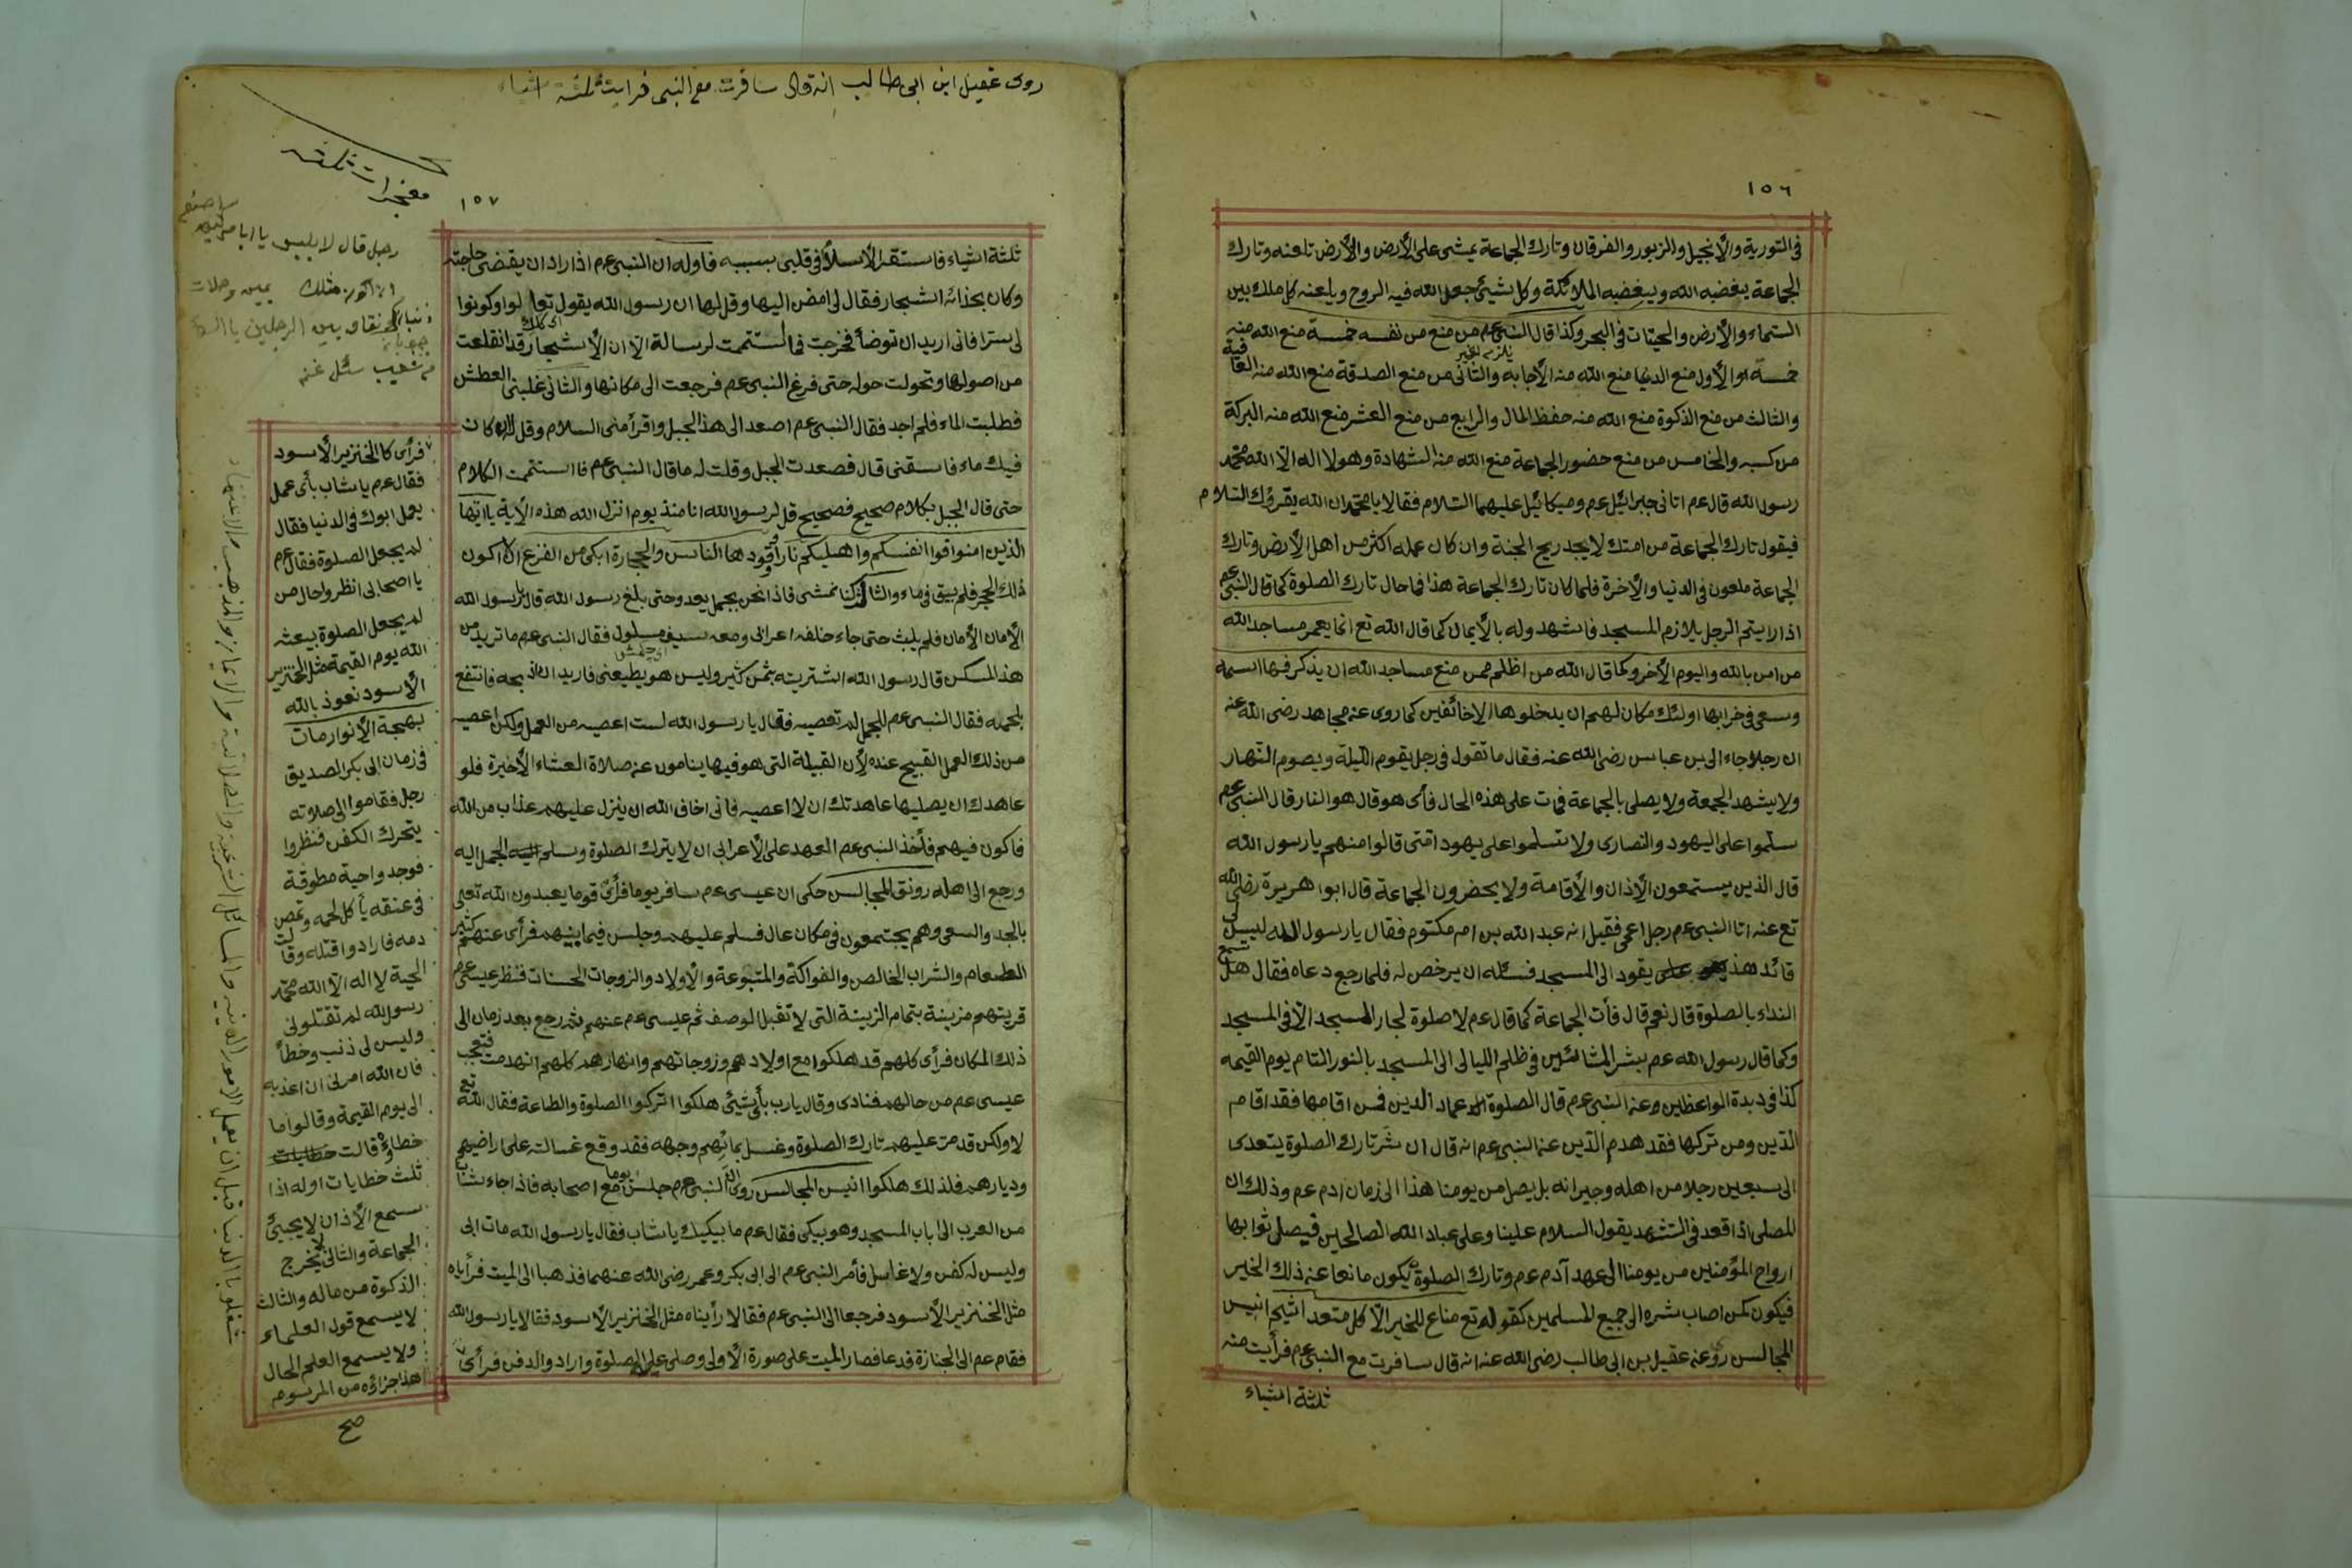 ١٥٦
فى التورية والأنجيل والزبور والفرقان وتارك الجماعة يمشى على الأرض والأرض تلعنه وتارك
الجماعة يبغضبه الله ويبغضبه الملائكة وكل شيئ جعل الله فيه الروح ويلعنه كل ملك بين
السماء والأرض والحيتات فى البحر وكذا قال النبى عم من منع من نفسه خمسة منع الله منه
خمسة الأول منع الدنيا منع الله منه الأجابة والثانى من منع الصدقة منع الله منه العافية
والثالث من منع الذكوة منع الله منه حفظ المال والرابع من منع العشر منع الله منه البركة
من كسبه والخامس من منع حضور الجماعة منع الله منه الشهادة وهو لا اله الا الله محمد
رسول الله قال عم اتانى جبرائيل عم وميكائيل عليهما السلام فقالا يا محمد ان الله يقرؤك السلام
فيقول تارك الجماعة من امتك لا يجد ريح الجنة وان كان عمله اكثر من اهل الأرض وتارك
الجماعة ملعون فى الدنيا والآخرة فلما كان تارك الجماعة هذا فما حال تارك الصلوة كما قال النبى عم
اذا رايتم الرجل يلازم المسجد فاشهدوله بالأيمان كما قال الله تع انما يعمر مساجد الله
من امن بالله واليوم الأخر وكما قال الله من اظلم ممن منع مساجد الله ان يذكر فيها اسمه
وسعى فى خرابها اولئك مكان لهم ان يدخلوها الا خائفين كما روى عنه مجاهد رضى الله عنه
ان رجلا جاء الى بن عباس رضى الله عنه فقال ما تقول فى رجل يقوم الليلة ويصوم النهار
ولا يشهد الجمعة ولا يصلى بالجماعة فمات على هذه الحال فأى هو قال هو النار قال النبى عم
سلموا على اليهود والنصارى ولا تسلموا على يهود امتى قالوا منهم يا رسول الله
قال الذين يستمعون الأذان والأقامة ولا يحضرون الجماعة قال ابوا هريرة رضى الله
تع عنه اتا النبى عم رجل اعمى فقيل انه عبد الله بن ام مكتوم فقال يا رسول الله ليس لى
قائد هذ يقود الى المسجد فسئله ان يرخص له فلما رجع دعاه فقال هل تسمع
النداء بالصلوة قال نعم قال فأت الجماعة كما قال عم لا صلوة لجار المسجد الا فى المسجد
وكما قال رسول الله عم بشر المشائين فى ظلم الليالى الى المسجد بالنور التام يوم القيمه
كذا فى دبدة الواعظين وعنه النبى عم قال الصلوة عماد الدين فمن اقامها فقد اقام
الدين ومن تركها فقد هدم الدين عنه النبى عم انه قال ان شر تارك الصلوة يتعدى
الى سبعين رجلا من اهله وجيرانه بل يصل من يومنا هذا الى زمان ادم عم وذلك ان
المصلى اذا قعد فى التشهد يقول السلام علينا وعلى عباد الله الصالحين فيصل ثوابها
ارواح المؤمنين من يومنا الى عهد آدم عم وتارك الصلوة يكون مانعا عنه ذلك الخير
فيكون كمن اصاب شره الى جميع المسلمين كقوله تع مناع للخير الا كل متعد اثيم انيس
المجالس روى عنه عقيل بن ابى طالب رضى الله عنه انه قال سافرت مع النبى عم فرأيت منه
ثلثة اشياء
روى عقيل ابن ابى طالب انه قال سافرت مع النبى فرايت ثلثة اشياء
١٥٧
رجل قال لابليس يا ابا
ثلثة اشياء فاستقر الأسلام فى قلبى بسببه فاوله ان النبى عم اذا راد ان يقضى حاجته
وكان بحذائه اشجار فقال لى امض اليها وقل لها ان رسول الله يقول تعالوا وكونوا
لى سترا فانى اريد ان توضأ فخرجت فما استتممت لرسالة الا ان الأشجار قد انقلعت
من اصولها وتحولت حوله حتى فرغ النبى عم فرجعت الى مكانها والثانى غلبنى العطش
فطلبت الماء فلم اجد فقال النبى عم اصعد الى هذا الجبل واقرأ منى السلام وقل له ان كان
فيك ماء فاسقنى قال فصعدت الجبل وقلت له ما قال النبى عم فما استتمت الكلام
حتى قال الجبل بكلام صحيح فصيح قل لرسول الله انا منذ يوم انزل الله هذه الأية يا ايها
الذين امنوا قوا انفسكم واهليكم نارا وقودها الناس والحجارة ابكى من الفزع ان اكون
ذلك الحجر فلم يبق فى ماء والثالث كنا نمشى فاذا نحن بجمل يعدو حتى بلغ رسول الله قال يا رسول الله
الأمان الأمان فلم يلبث حتى جاء خلفه اعرابى ومعه سيف مسلول فقال النبى عم ما تريد من
هذا المسكن قال رسول الله اشتريته بثمن كثير وليس هو يطيعنى فاريد ان اذبحه فانتفع
بلحمه فقال النبى عم للجمل لم تعصيه فقال يا رسول الله لست اعصيه من العمل ولكن اعصيه
من ذلك العمل القبيح عنده لأن القبيلة التى هو فيها ينامون عنه صلاة العشاء الأخيرة فلو
عاهدك ان يصليها عاهدتك ان لا اعصيه فانى اخاف الله ان ينزل عليهم عذاب من الله
فاكون فيهم فأخذ النبى عم العهد على الأعرابى ان لا يترك الصلوة وسلم الجمل اليه
ورجع الى اهله رونق المجالس حكى ان عيسى عم سافر يوما فرأى قوما يعبدون الله تعلى
بالجد والسعى وهم يجتمعون فى مكان عال فسلم عليهم وجلس فيما بينهم فرأى عنهم كثير
الطعام والشراب الخالص والفواكة والمتبوعة والأولاد والزوجات الحسنات فنظر عيسى عم
قريتهم مزينة بتمام الزينة التى لا تقبل الوصف ثم عيسى عم عنهم ثم رجع بعد زمان الى
ذلك المكان فرأى كلهم قد هلكوا مع اولادهم وزوجاتهم وانهارهم كلهم انهدمت فتعجب
عيسى عم من حالهم فنادى وقال يارب بأى شيئ هلكوا اتركوا الصلوة والطاعة فقال الله تع
لا ولكن قد مر عليهم تارك الصلوة وغسل بمائهم وجهه فقد وقع غسالته على اراضيهم
وديارهم فلذلك هلكوا انيس المجالس روى ان النبى عم جلس يوما مع اصحابه فاذا جاء شاب
من العرب الى باب المسجد وهو يبكى فقال عم ما يبكيك يا شاب فقال يا رسول الله مات ابى
وليس له كفن ولا غاسل فأمر النبى عم الى ابى بكر وعمر رضى الله عنهما فذهبا الى الميت فرأياه
مثل الخنزير الأسود فرجعا الى النبى عم فقالا رأيناه مثل الخنزير الأسود فقالا يا رسول الله
فقام عم الى الجنازة فدعا فصار الميت على صورة الأولى وصلى عليه الصلوة وارادوا الدفن فرأى
فرأى كالخنزير الأسود
فقال عم يا شاب بأى عمل
يعمل ابوك فى الدنيا فقال
لم يجعل الصلوة فقال عم
يا اصحابى انظروا حال من
لم يجعل الصلوة يبعثه
الله يوم القيمة مثل الخنزير
الأسود نعوذ بالله
بهجة الأنوار مات
فى زمان ابى بكر الصديق
رجل فقاموا الى صلاته
يتحرك الكفن فنظروا
فوجدوا حية مطوقة
فى عنقه يأكل لحمه وتمص
دمه فارادوا قتله وقالت
الحية لا اله الا الله محمد
رسول الله لم تقتلونى
وليس لى ذنب وخطأ
فان الله امرنى ان اعذبه
الى يوم القيمة وقالوا ما
خطاؤه قالت
ثلث خطايات اوله اذا
سمع الأذان لا يجيئ
الجماعة والثانى لا يخرج
الذكوة من ماله والثالث
لا يسمع قول العلماء
ولا يسمع العلم الحال
هذا جزاؤه من المرسوم
صح